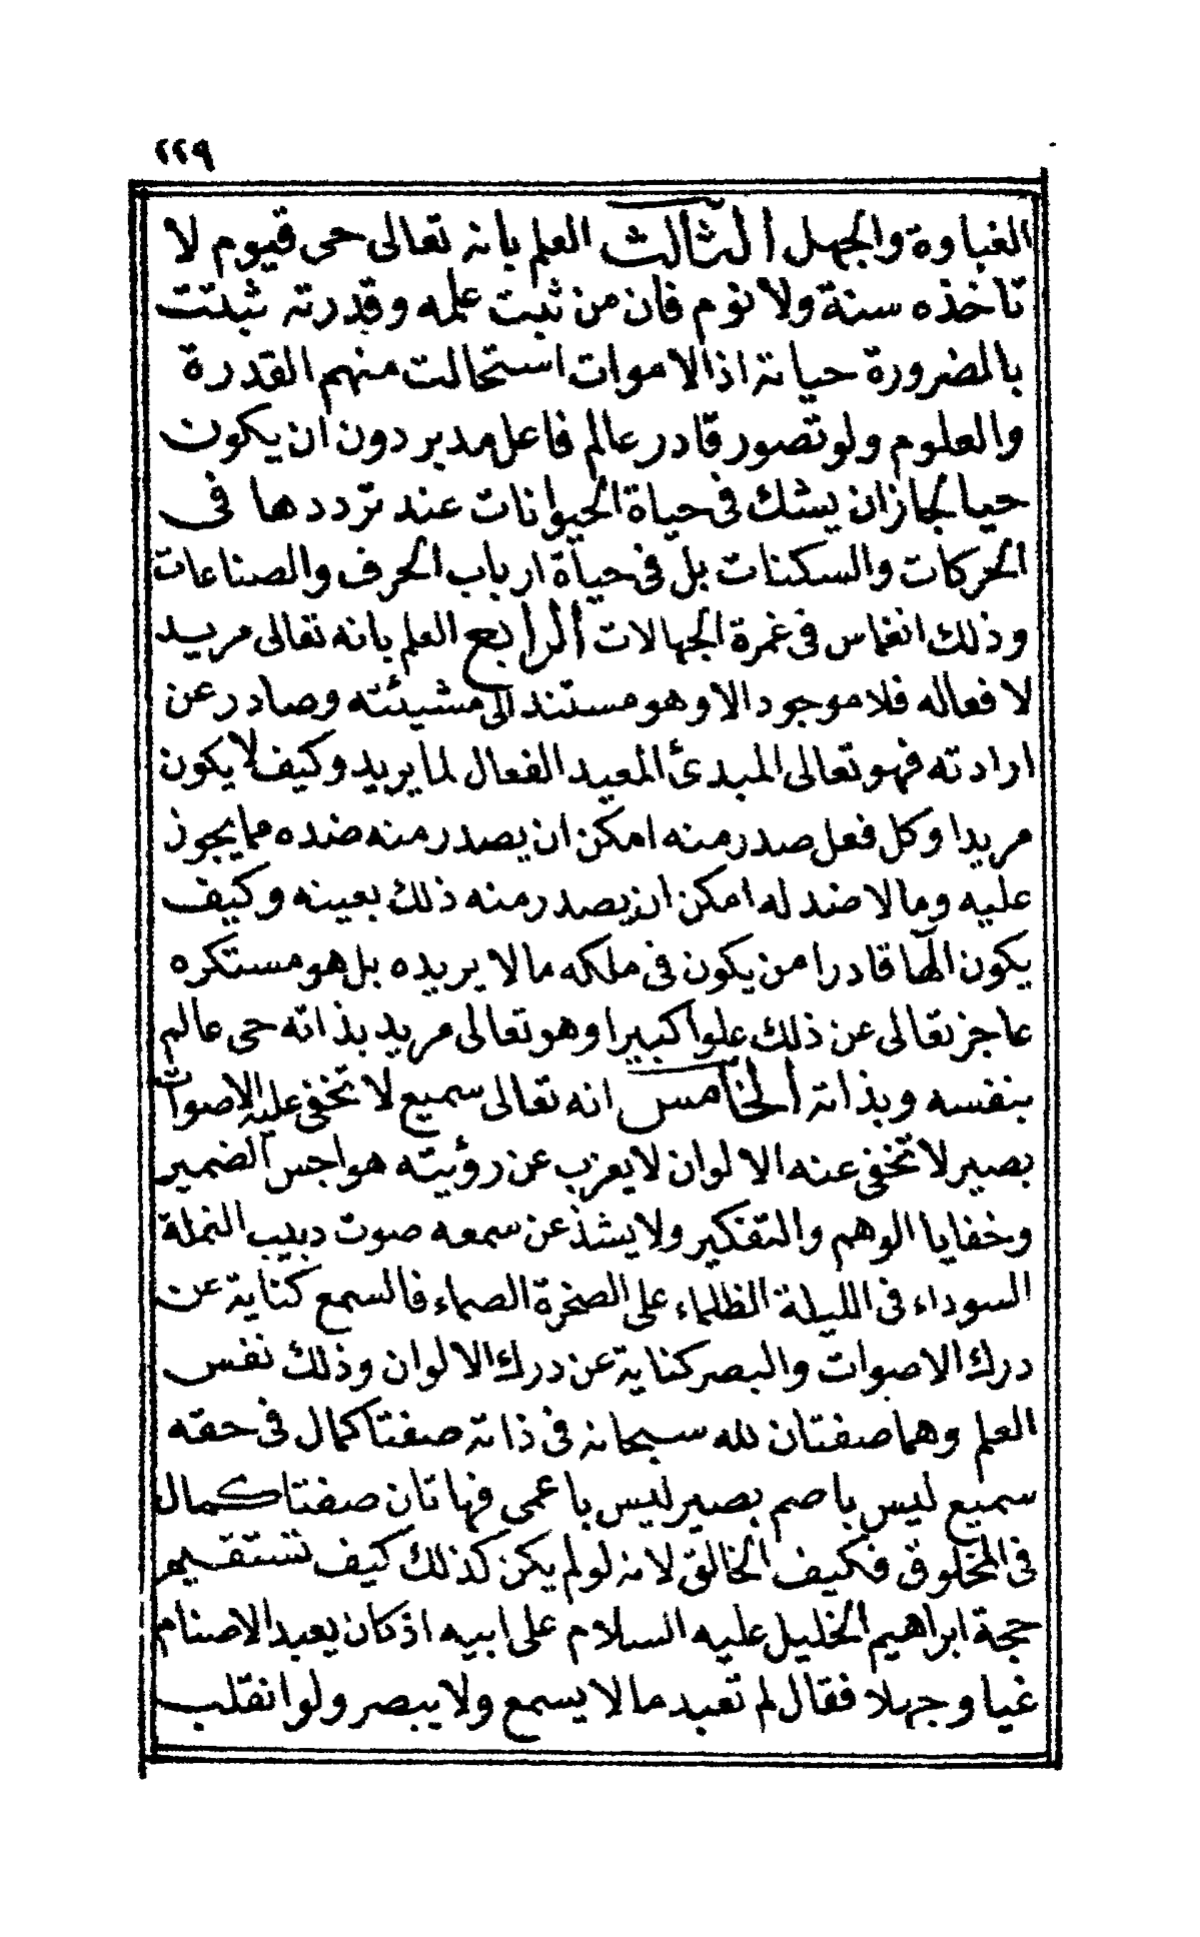 ٢٢٩
الغباوة والجهل الثالث العلم بانه تعالى حى قيوم لا
تاخذه سنة ولا نوم فان من ثبت علمه وقدرته ثبتت
بالضرورة حياته اذ الاموات استحالت منهم القدرة
والعلوم ولو تصور قادر عالم فاعل مدبر دون ان يكون
حيا لجاز ان يشك فى حياة الحيوانات عند ترددها فى
الحركات والسكنات بل فى حياة ارباب الحرف والصناعات
وذلك انغماس فى غمرة الجهالات الرابع العلم بانه تعالى مريد
لافعاله فلا موجود الا وهو مستند الى مشيئته وصادر عن
ارادته فهو تعالى المبدئ المعيد الفعال لما يريد وكيف لا يكون
مريدا وكل فعل صدر منه امكن ان يصدر منه ضده مما يجوز
عليه وما لا ضد له امكن ان يصدر منه ذلك بعينه وكيف
يكون الها قادرا من يكون فى ملكه ما لا يريده بل هو مستكره
عاجز تعالى عن ذلك علوا كبيرا وهو تعالى مريد بذاته حى عالم
بنفسه وبذاته الخامس انه تعالى سميع لا تخفى عليه الاصوات
بصير لا تخفى عنه الالوان لا يعزب عن رؤيته هواجس الضمير
وخفايا الوهم والتفكير ولا يشذ عن سمعه صوت دبيب النملة
السوداء فى الليلة الظلماء على الصخرة الصماء فالسمع كناية عن
درك الاصوات والبصر كناية عن درك الالوان وذلك نفس
العلم وهما صفتان لله سبحانه فى ذاته صفتا كمال فى حقه
سميع ليس باصم بصير ليس باعمى فهاتان صفتا كمال
فى المخلوق فكيف الخالق لانه لو لم يكن كذلك كيف تستقيم
حجة ابراهيم الخليل عليه السلام على ابيه اذ كان يعبد الاصنام
غيا وجهلا فقال لم تعبد ما لا يسمع ولا يبصر ولو انقلب